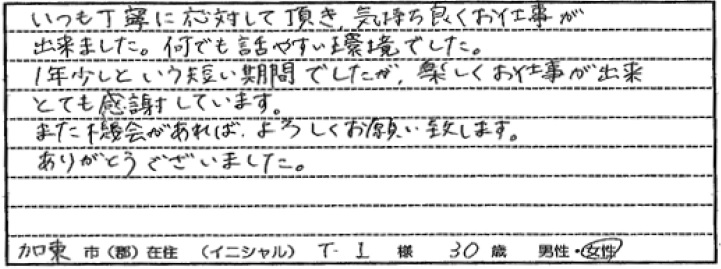 いつも丁寧に応対して頂き、気持ち良くお仕事が
出来ました。何でも話やすい環境でした。
1年少しという短い期間でしたが、楽しくお仕事が出来
とても感謝しています。
また機会があれば、よろしくお願い致します。
ありがとうございました。
加東 市(郡)在住 (イニシャル) T-I 様 30歳 男性・女性